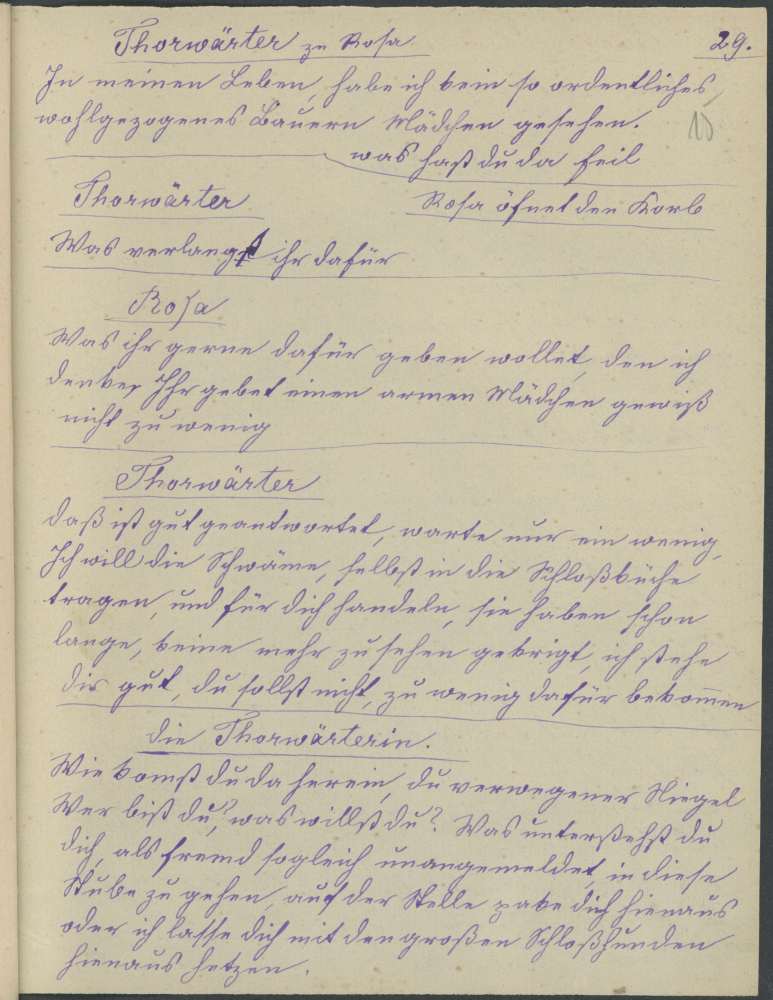 Thorwärter zu Rosa. 29.
In meinen Leben, habe ich kein so ordentliches,
wohlgezogenes Bauern Mädchen gesehen.
was hast du da feil
Thorwärter Rosa öfnet den Korb
Was verlangt ihr dafür
Rosa
Was ihr gerne dafür geben wollet, den ich
denke, Ihr gebet einen armen Mädchen gewiß
nicht zu wenig
Thorwärter
daß ist gut geantwortet, warte nur ein wenig,
Ich will die Schwäme, selbst in die Schloßküche
tragen, und für dich handeln, sie haben schon
lange, keine mehr zu sehen gekrigt, ich stehe
dir gut, du sollst nicht, zu wenig dafür bekom̄en
die Thorwärterin.
Wie komst du da herein, du verwegener Niegel
Wer bist du? was willst du? Was unterstehst du
dich, als fremd sogleich unangemeldet, in diese
Stube zu gehen, auf der Stelle pake dich hienaus
oder ich lasse dich mit den großen Schloßhunden
hienaus hetzen.